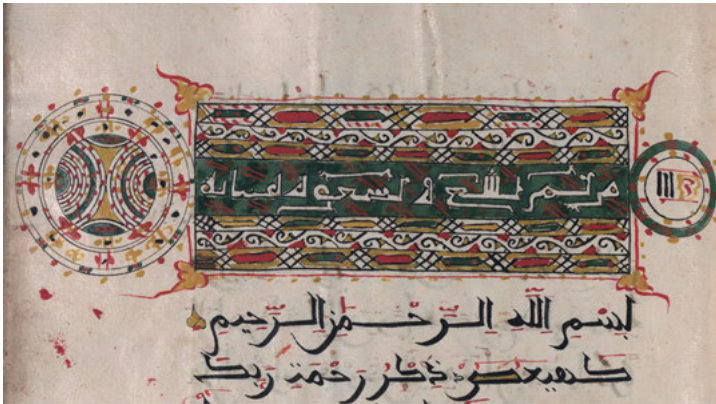 مريم تسع وتسعون
بسم الله الرحمن الرحيم
كهيعص ذكر رحمت ربك